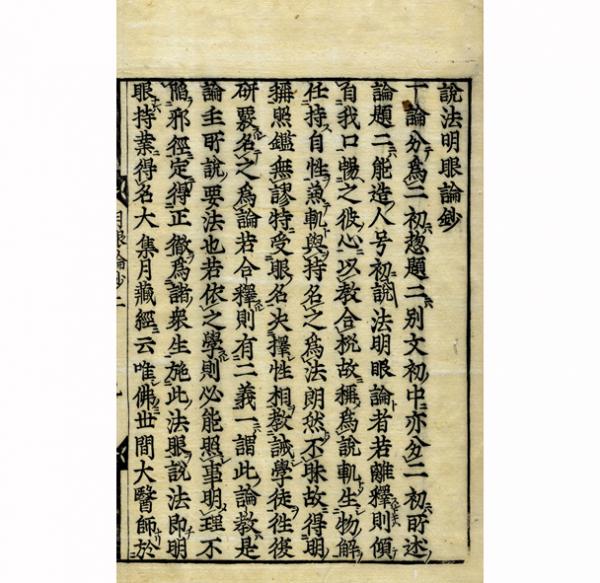 說法明眼論鈔
一論分爲二初惣題二別文初中亦分二初所述
論題二能造人号初說法明眼論者若離釋則傾
自我口暢之彼心以教合悦故稱爲說軌生物解
任持自性兼軌與持名之爲法朗然不昧故得明
稱照鑑無謬特受眼名决擇性相教誡學徒徃復
研覈名之爲論若合釋則有二義一謂此論教是
論主所說要法也若依之學則必能照事明理不
陷邪徑定得正徹爲諸衆生施此法眼說法即明
眼持業得名大集月藏經云唯佛世間大醫師於
明眼論鈔二